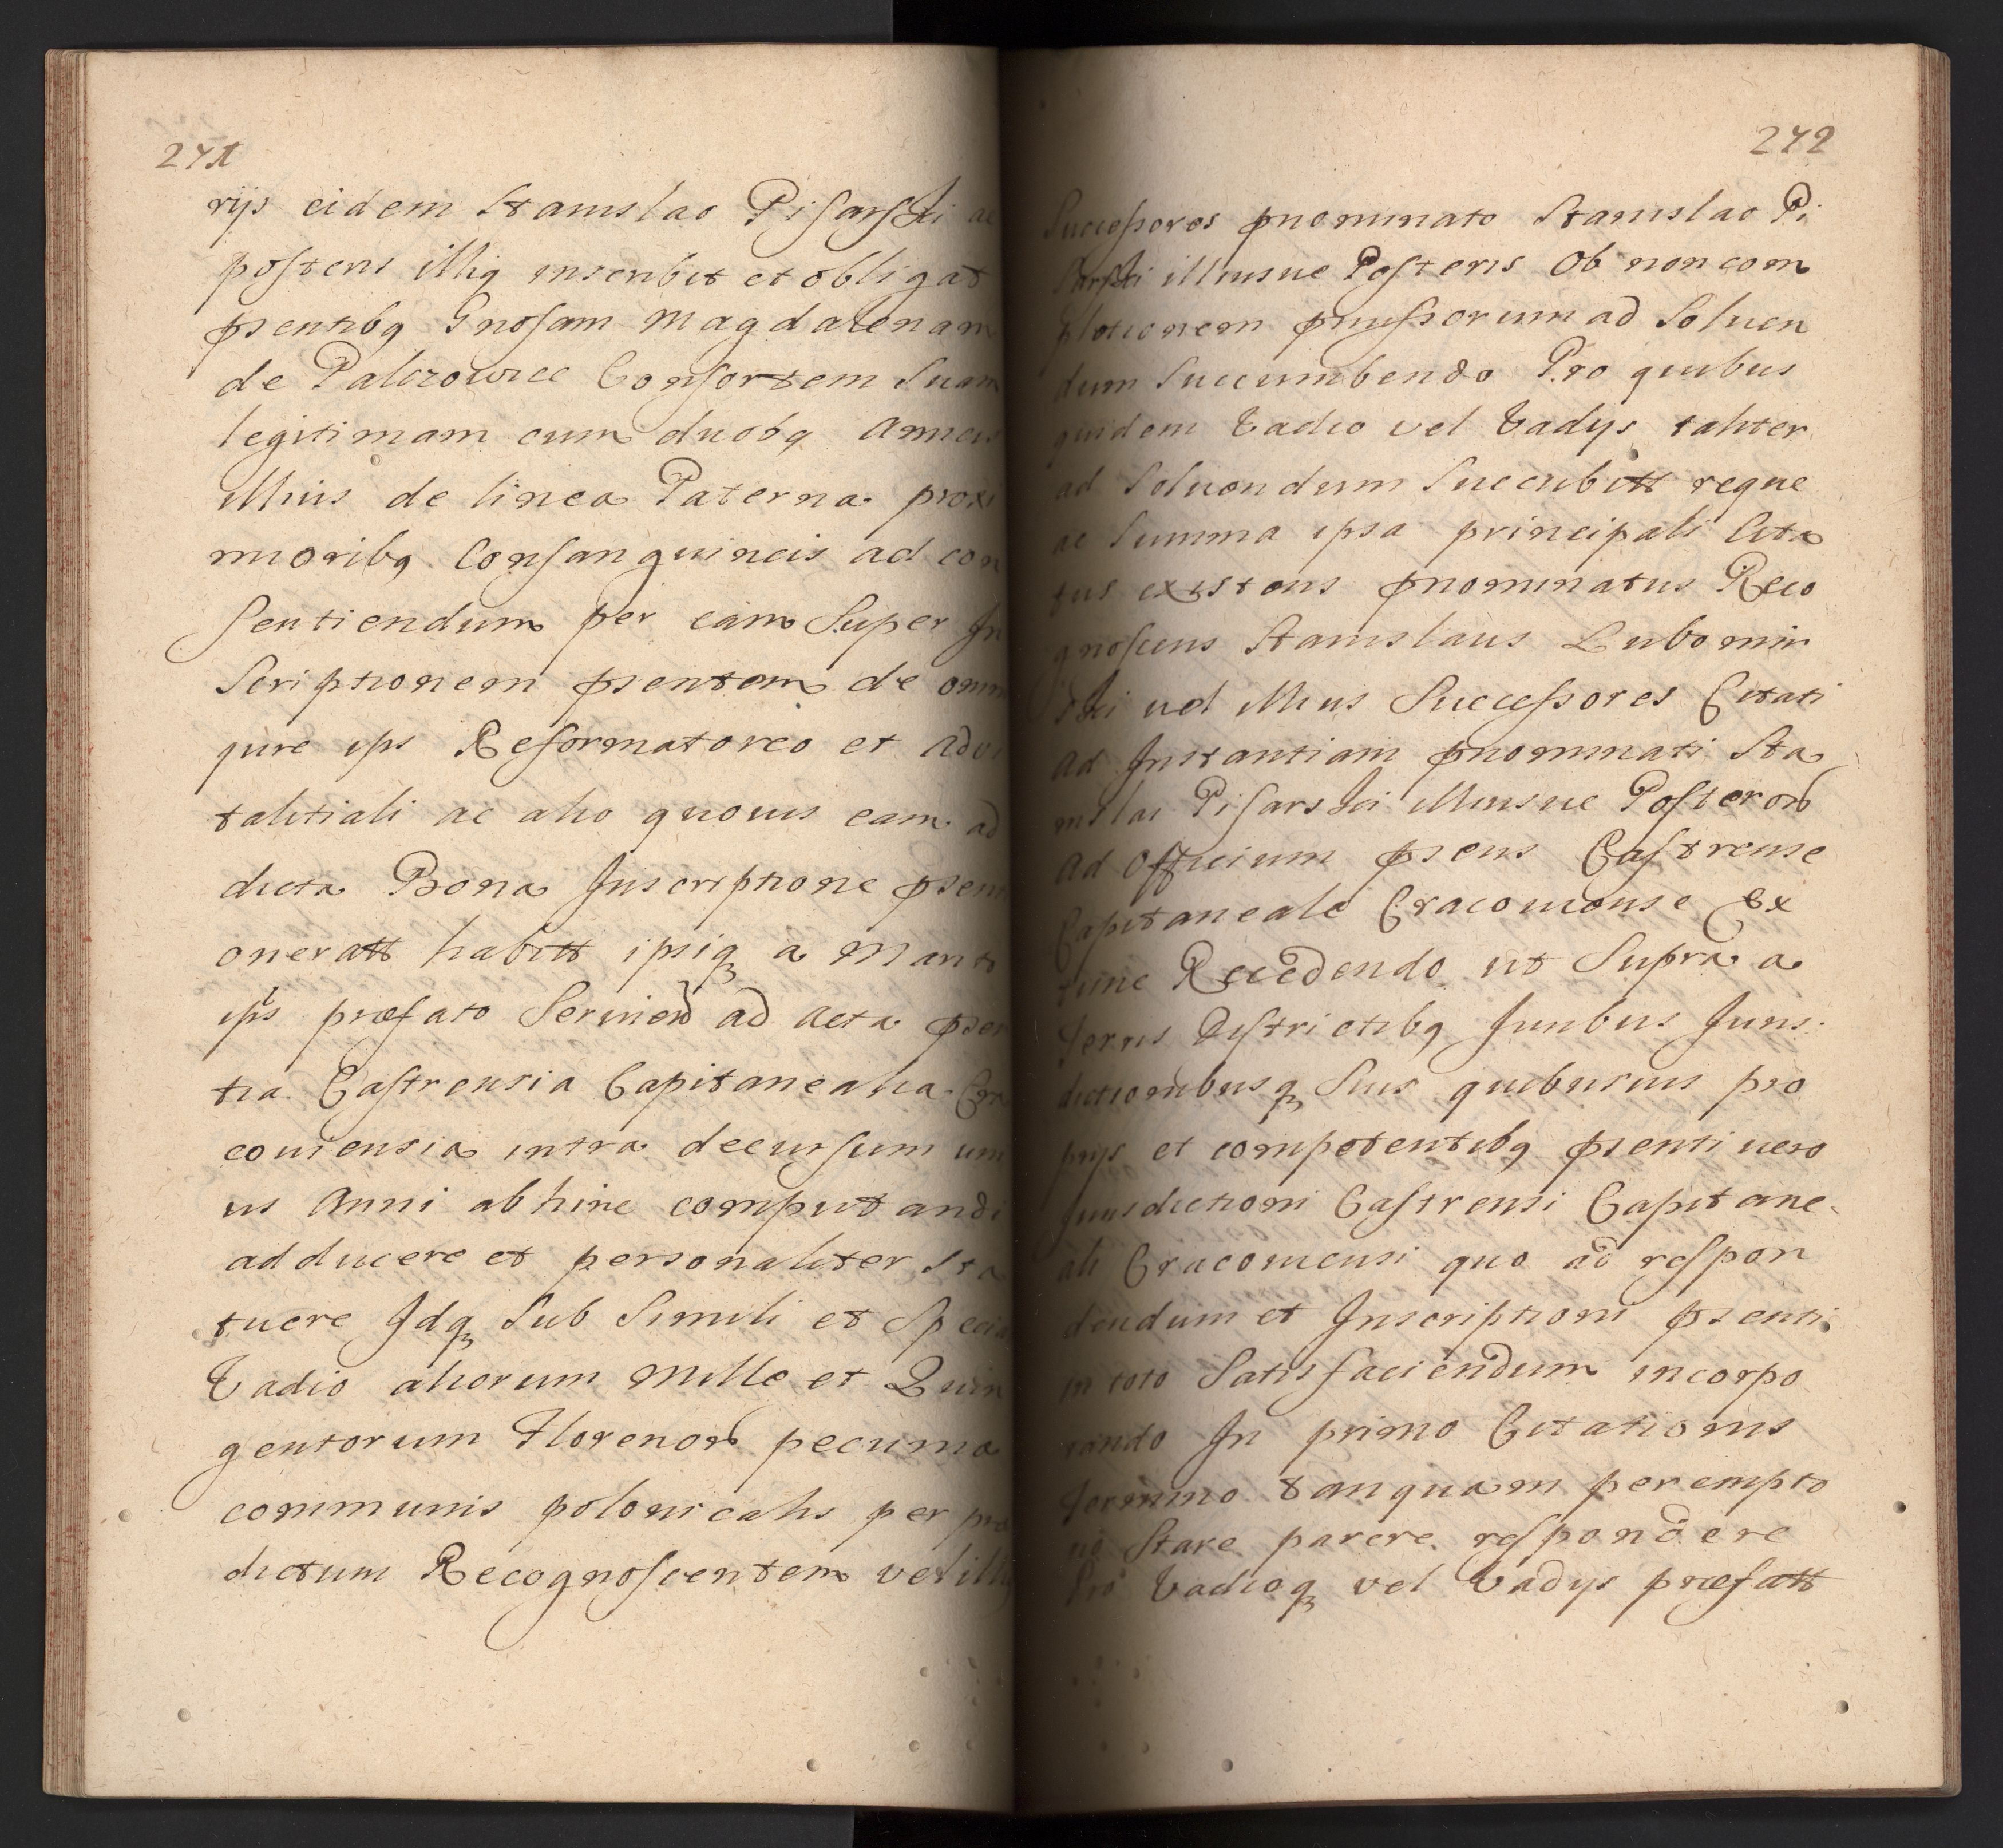 271
rijs eidem Stanislao Pisarski ac
posteris illiq inscribit et obligat
psentibq Gnosam Magdalenam
de Palczowice Consortem Suam
legitimam cum duobq Amicis
illius de linea Paterna proxi
mioribq Consanguineis ad con
sentiendum per eam Super In
Scriptionem psentem de omni
jure ips Reformatorio et advi
talitiali ac alio quovis eam ad
dicta Bona Inscriptione psenti
oneratt habentt ipsiq a Marito
ips præfato Serviend ad acta psen
tia Castrensia Capitanealia Cra
coviensia intra decursum uni
us Anni ab hinc computandi
adducere et personaliter Sta
tuere Idq Sub Simili et Speciali
Vadio aliorum Mille et Quin
gentorum Florenor pecuniæ
communis polonicalis per præ
dictum Recognoscentem vel illiq
272
Successores pnominato Stanislao Pi
sarski illiusve Posteris Ob non com
pletionem pmissorum ad Solven
dum Succumbendo Pro quibus
quidem Vadio vel Vadijs taliter
ad Solvendum Succubitt reque
ac Summa ipsa principali Cita
tus existens pnominatus Reco
gnoscens Stanislaus Lubomir
ski vel illius Successores Citati
ad Instantiam pnominati Sta
nislai Pisarski illiusve Posteror
ad Officium psens Castrense
Capitaneale Cracoviense Ex
tunc Recedendo ut Supra a
Terris Districtibq Juribus Juris
dictionibusq Suis quibusvis pro
prijs et competentibq psenti vero
Jurisdictioni Castrensi Capitane
ali Cracoviensi quo ad respon
dendum et Inscriptioni psenti
in toto Satisfaciendum incorpo
rando In primo Citationis
Termino tanquam perempto
rio Stare parere respondere
Pro Vadioq vel Vadijs præfatt